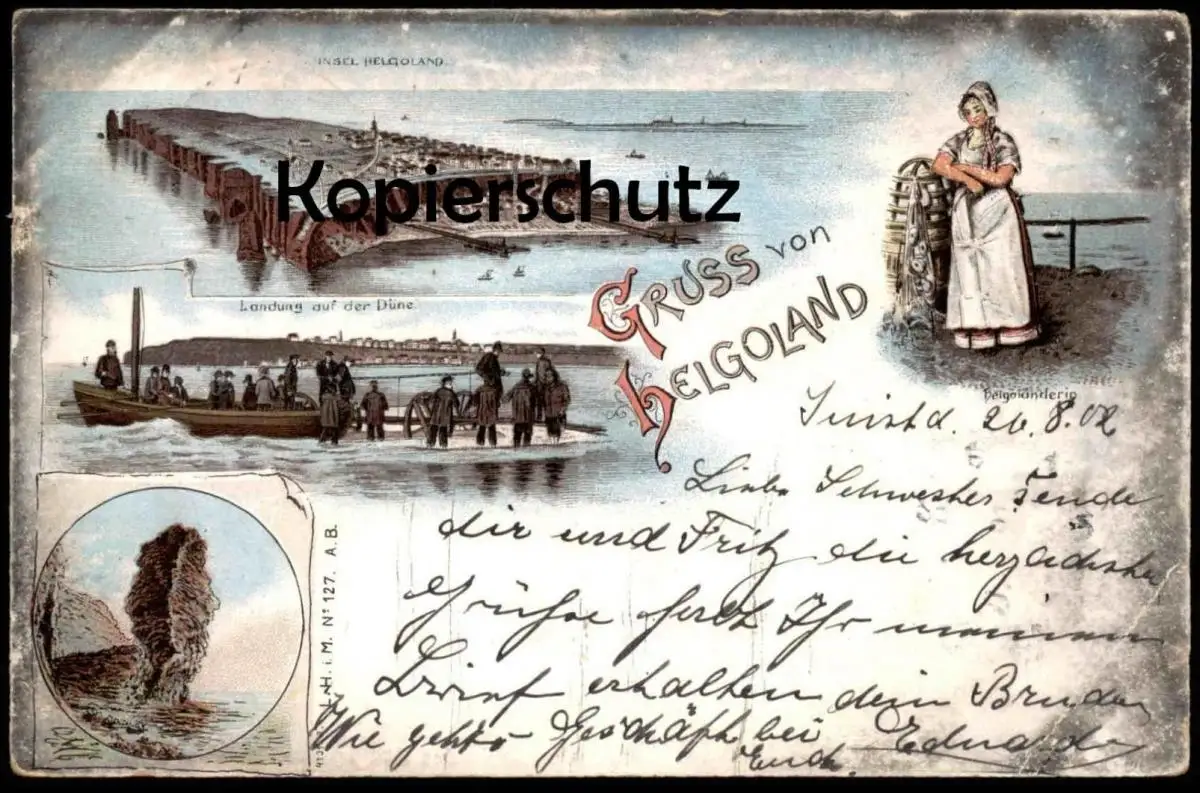 INSEL HELGOLAND
Kopierschutz
GRUSS von
HELGOLAND
Landung auf der Düne
Helgoländerin
26.8.02
Liebe Schwester Sende
dir und Fritz die
Grüße Ihr meinen
Brief erhalten dein Bruder
Wie gehts Geschäft bei Eduard
Euch.
H. i. M. No 127. A.B.